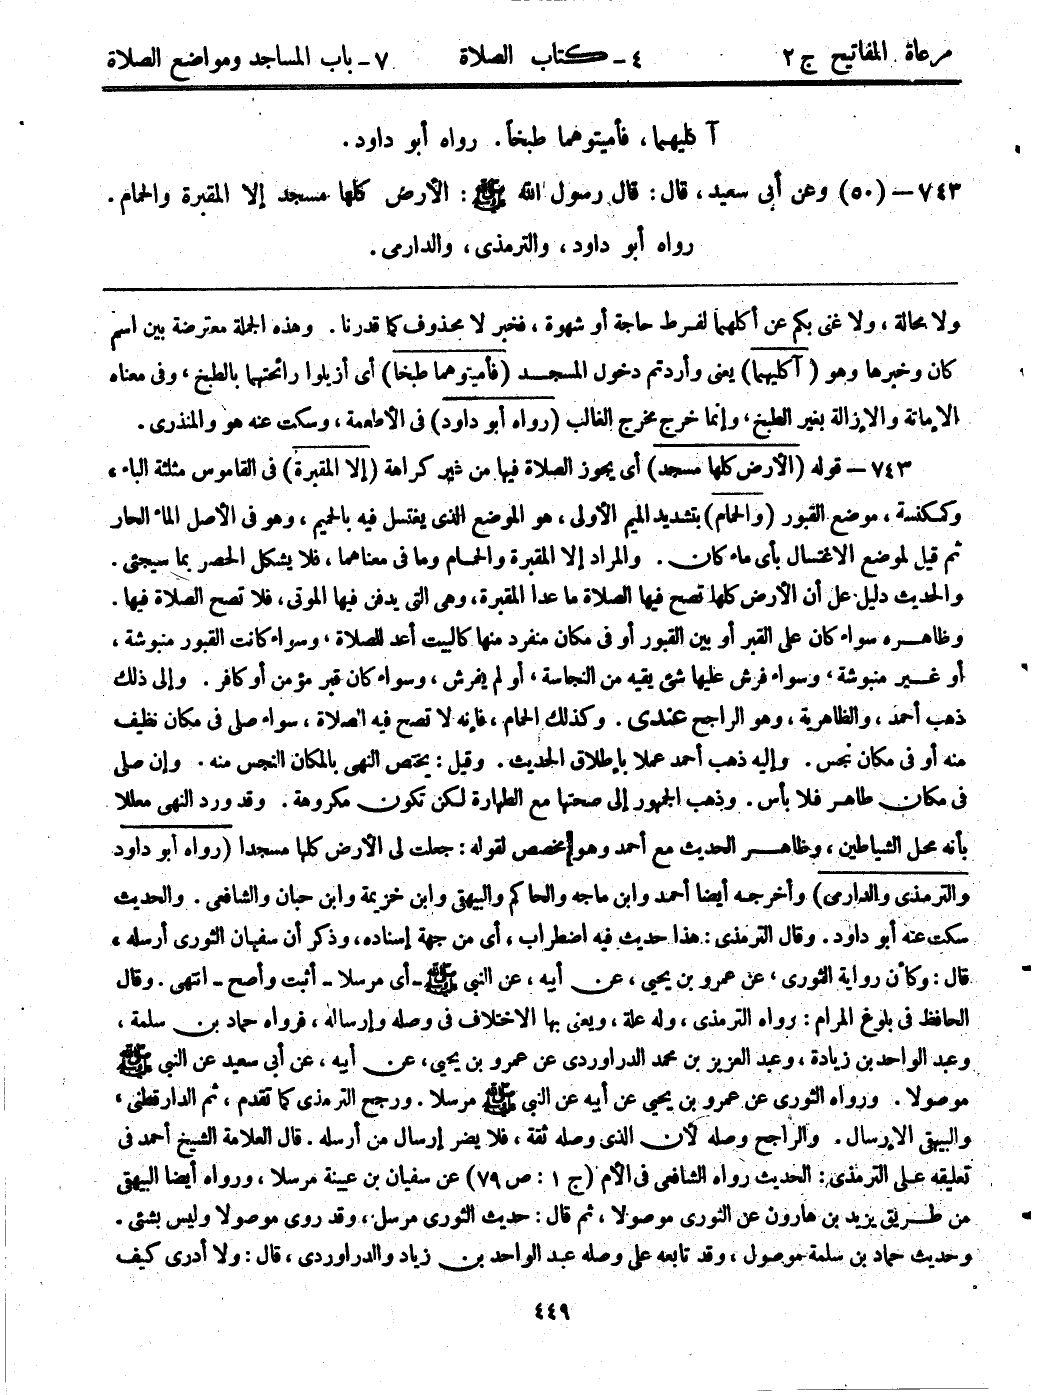 مرعاة المفاتيح ج ٢
٤ - كتاب الصلاة
٧ - باب المساجد ومواضع الصلاة
آكليهما، فأميتوهما طبخاً. رواه أبو داود.
٧٤٣ - (٥٠) وعن أبى سعيد، قال: قال رسول الله ﷺ: الأرض كلها مسجد إلا المقبرة والحمام.
رواه أبو داود، والترمذى، والدارمى.
ولا محالة، ولا غنى بكم عن أكلهما لفرط حاجة أو شهوة، فخبر لا محذوف كما قدرنا. وهذه الجملة معترضة بين اسم
كان وخبرها وهو (آكليهما) يعنى وأردتم دخول المسجد (فأميتوهما طبخا) أى أزيلوا رائحتهما بالطبخ، وفى معناه
الإماتة والإزالة بغير الطبخ، وإنما خرج مخرج الغالب (رواه أبو داود) فى الأطعمة، وسكت عنه هو والمنذرى.
٧٤٣ - قوله (الأرض كلها مسجد) أى يجوز الصلاة فيها من غير كراهة (إلا المقبرة) فى القاموس مثلثة الباء،
وكمكنسة، موضع القبور (والحمام) بتشديد الميم الأولى، هو الموضع الذى يغتسل فيه بالحميم، وهو فى الأصل الماء الحار
ثم قيل لموضع الاغتسال بأى ماء كان. والمراد إلا المقبرة والحمام وما فى معناهما، فلا يشكل الحصر بما سيجئى.
والحديث دليل على أن الأرض كلها تصح فيها الصلاة ما عدا المقبرة، وهى التى يدفن فيها الموتى، فلا تصح الصلاة فيها.
وظاهره سواء كان على القبر أو بين القبور أو فى مكان منفرد منها كالبيت أعد للصلاة، وسواء كانت القبور منبوشة،
أو غير منبوشة، وسواء فرش عليها شئ يقيه من النجاسة، أو لم يفرش، وسواء كان قبر مؤمن أو كافر. وإلى ذلك
ذهب أحمد، والظاهرية، وهو الراجح عندى. وكذلك الحمام، فإنه لا تصح فيه الصلاة، سواء صلى فى مكان نظيف
منه أو فى مكان نجس. وإليه ذهب أحمد عملا بإطلاق الحديث. وقيل: يختص النهى بالمكان النجس منه. وإن صلى
فى مكان طاهر فلا بأس. وذهب الجمهور إلى صحتها مع الطهارة لكن تكون مكروهة. وقد ورد النهى معللا
بأنه محل الشياطين، وظاهر الحديث مع أحمد وهو مخصص لقوله: جعلت لى الأرض كلها مسجدا (رواه أبو داود
والترمذى والدارمى) وأخرجه أيضا أحمد وابن ماجه والحاكم والبيهقى وابن خزيمة وابن حبان والشافعى. والحديث
سكت عنه أبو داود. وقال الترمذى: هذا حديث فيه اضطراب، أى من جهة إسناده، وذكر أن سفيان الثورى أرسله،
قال: وكأن رواية الثورى، عن عمرو بن يحيى، عن أبيه، عن النبى ﷺ - أى مرسلا - أثبت وأصح - انتهى. وقال
الحافظ فى بلوغ المرام: رواه الترمذى، وله علة، ويعنى بها الاختلاف فى وصله وإرساله، فرواه حماد بن سلمة،
وعبد الواحد بن زيادة، وعبد العزيز بن محمد الدراوردى عن عمرو بن يحيى، عن أبيه، عن أبى سعيد عن النبى ﷺ
موصولا. ورواه الثورى عن عمرو بن يحيى عن أبيه عن النبى ﷺ مرسلا. ورجح الترمذى كما تقدم، ثم الدارقطنى،
والبيهقى الإرسال. والراجح وصله لأن الذى وصله ثقة، فلا يضر إرسال من أرسله. قال العلامة الشيخ أحمد فى
تعليقه على الترمذى: الحديث رواه الشافعى فى الأم (ج ١ : ص ٧٩) عن سفيان بن عيينة مرسلا، ورواه أيضا البيهقى
من طريق يزيد بن هارون عن الثورى موصولا، ثم قال: حديث الثورى مرسل، وقد روى موصولا وليس بشئ.
وحديث حماد بن سلمة موصول، وقد تابعه على وصله عبد الواحد بن زياد والدراوردى، قال: ولا أدرى كيف
٤٤٩